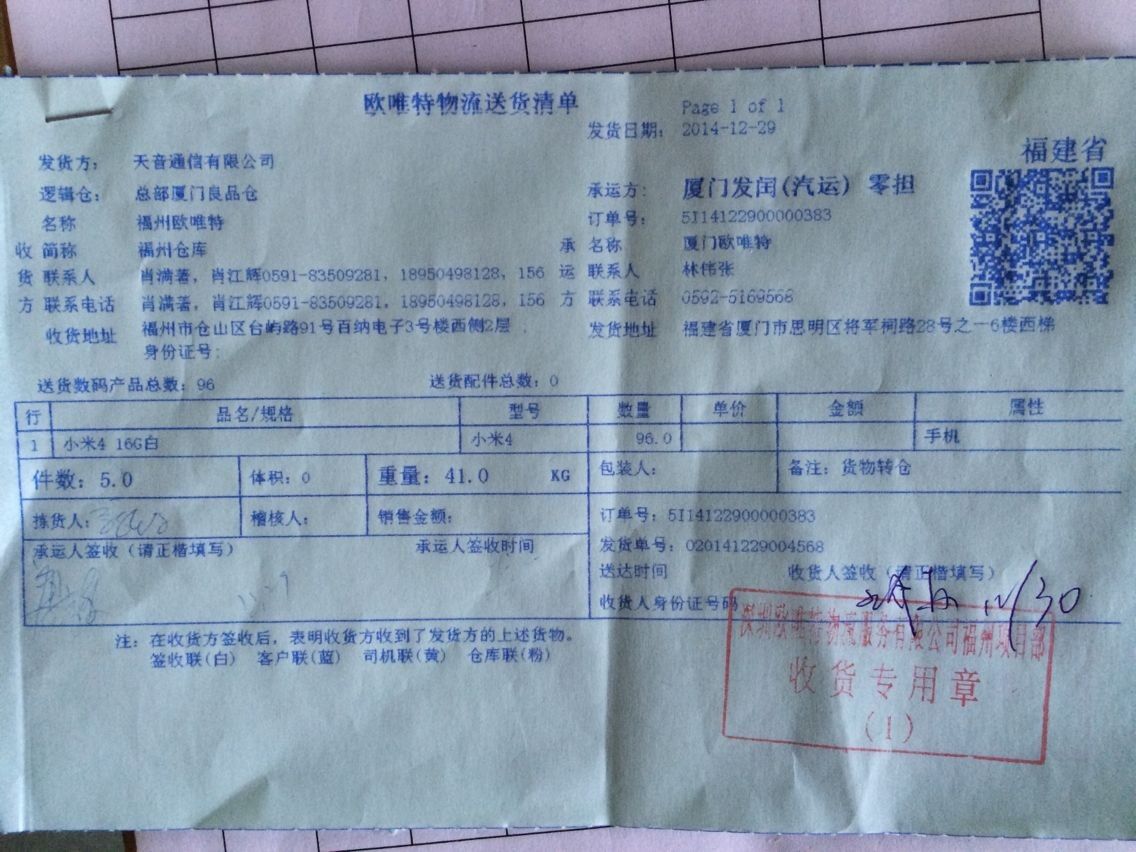 欧唯特物流送货清单
Page 1 of 1
发货日期: 2014-12-29
福建省
发货方: 天音通信有限公司
逻辑仓: 总部厦门良品仓
承运方: 厦门发闰(汽运) 零担
订单号: 5I14122900000383
收货方
名称 福州欧唯特
简称 福州仓库
联系人 肖满著, 肖江辉0591-83509281, 18950498128, 156
联系电话 肖满著, 肖江辉0591-83509281, 18950498128, 156
收货地址 福州市仓山区台屿路91号百纳电子3号楼西侧2层 ,
身份证号:
承运方
名称 厦门欧唯特
联系人 林伟张
联系电话 0592-5169568
发货地址 福建省厦门市思明区将军祠路28号之一6楼西梯
送货数码产品总数: 96 送货配件总数: 0
行 品名/规格 型号 数量 单价 金额 属性
1 小米4 16G白 小米4 96.0 手机
件数: 5.0 体积: 0 重量: 41.0 KG 包装人: 备注: 货物转仓
拣货人: 稽核人: 销售金额:
订单号: 5I14122900000383
承运人签收 (请正楷填写) 承运人签收时间
发货单号: 020141229004568
送达时间 收货人签收 (请正楷填写)
收货人身份证号码
12/30
深圳欧唯特物流服务有限公司福州项目部
收货专用章
(1)
注: 在收货方签收后, 表明收货方收到了发货方的上述货物。
签收联(白) 客户联(蓝) 司机联(黄) 仓库联(粉)